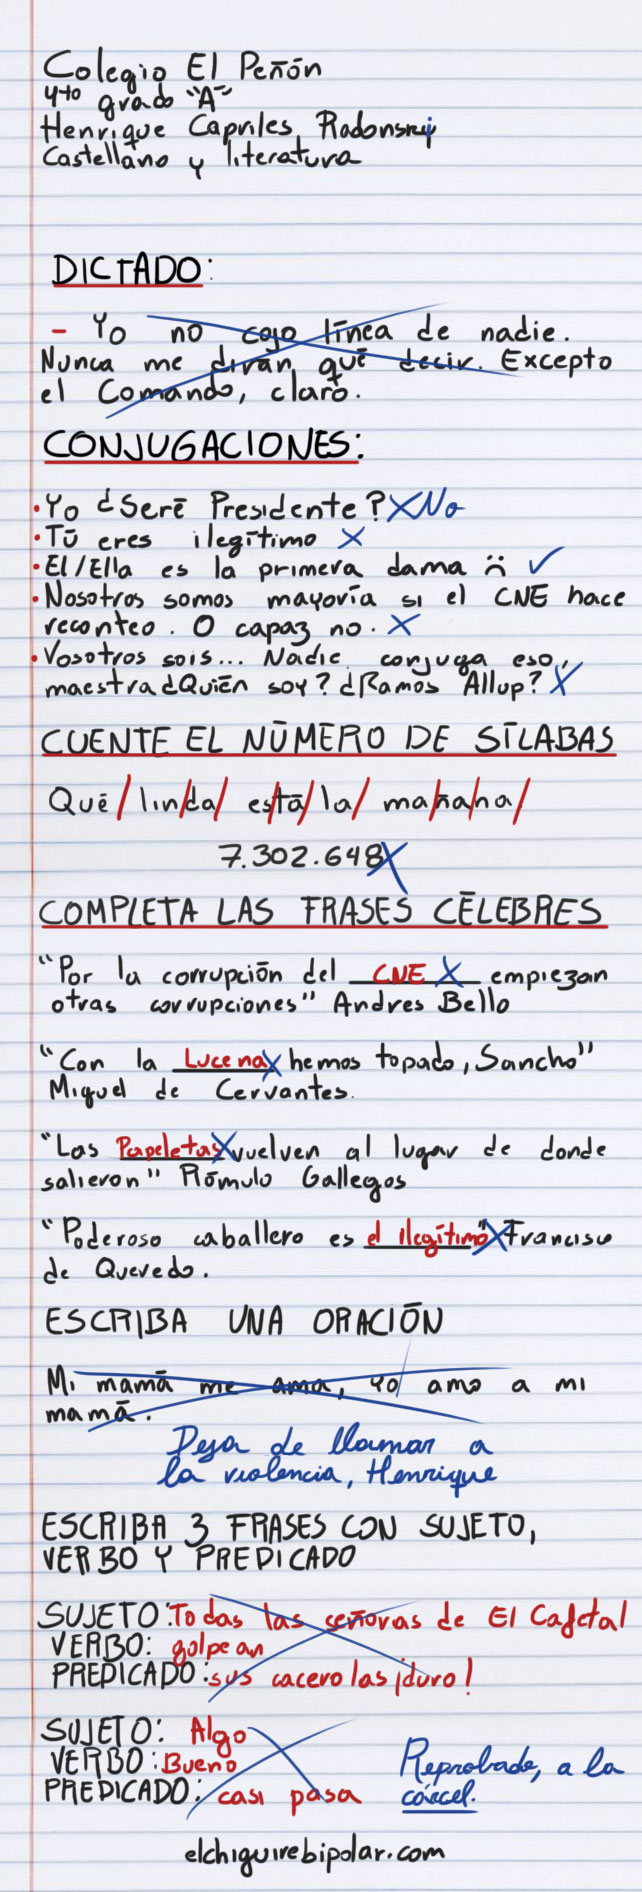 Colegio El Peñón
4to grado "A"
Henrique Capriles Radonski
Castellano y literatura
DICTADO:
- Yo no cojo línea de nadie.
Nunca me dirán qué decir. Excepto
el Comando, claro.
CONJUGACIONES:
• Yo ¿Seré Presidente? X No
• Tú eres ilegítimo X
• El/Ella es la primera dama :( ✓
• Nosotros somos mayoría si el CNE hace
reconteo. O capaz no. X
• Vosotros sois... Nadie conjuga eso,
maestra ¿Quién soy? ¿Ramos Allup? X
CUENTE EL NÚMERO DE SÍLABAS
Qué/ lin/da/ es/tá/ la/ ma/ña/na/
7.302.648 X
COMPLETA LAS FRASES CÉLEBRES
"Por la corrupción del CNE X empiezan
otras corrupciones" Andres Bello
"Con la Lucena X hemos topado, Sancho"
Miguel de Cervantes.
"Las Papeletas X vuelven al lugar de donde
salieron" Rómulo Gallegos
"Poderoso caballero es el Ilegítimo" X Francisco
de Quevedo.
ESCRIBA UNA ORACIÓN
Mi mamá me ama, yo amo a mi
mamá.
Deja de llamar a
la violencia, Henrique
ESCRIBA 3 FRASES CON SUJETO,
VERBO Y PREDICADO
SUJETO: Todas las señoras de El Cafetal
VERBO: golpean
PREDICADO: sus cacerolas ¡duro!
SUJETO: Algo
VERBO: Bueno
PREDICADO: casi pasa
Reprobado, a la
cárcel.
elchiguirebipolar.com